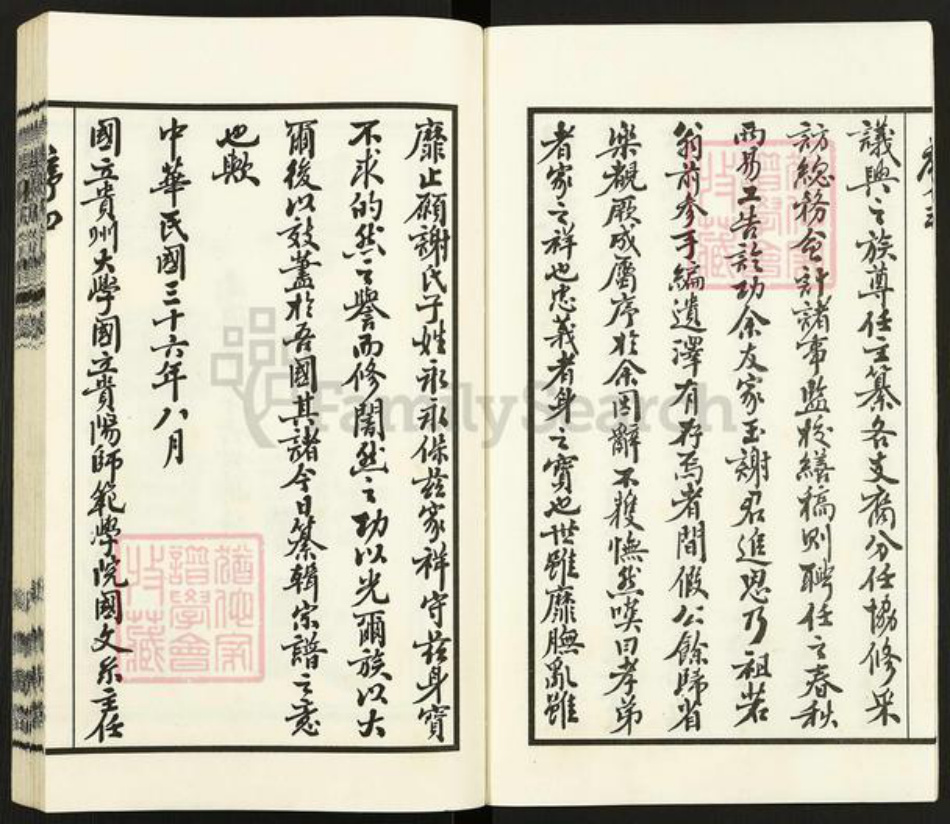 議與之族尊任主纂各支裔分任協修采
訪總務会計諸事監校繕稿則聘任之春秋
兩易工告訖功余友家玉謝君進思乃祖若
翁前參手編遺澤有存焉者間假公餘歸省
樂觀厥成屬序於余因辭不獲憮然嘆曰孝弟
者家之祥也忠義者身之寶也世雖靡膴亂雖
靡止願謝氏子姓永永保茲家祥守茲身寶
不求的然之譽而修闇然之功以光爾族以大
爾後以效藎於吾國其諸今日纂輯宗譜之意
也歟
中華民國三十六年八月
國立貴州大學國立貴陽師範學院國文系主任
序
譜學會
收藏
FamilySearch